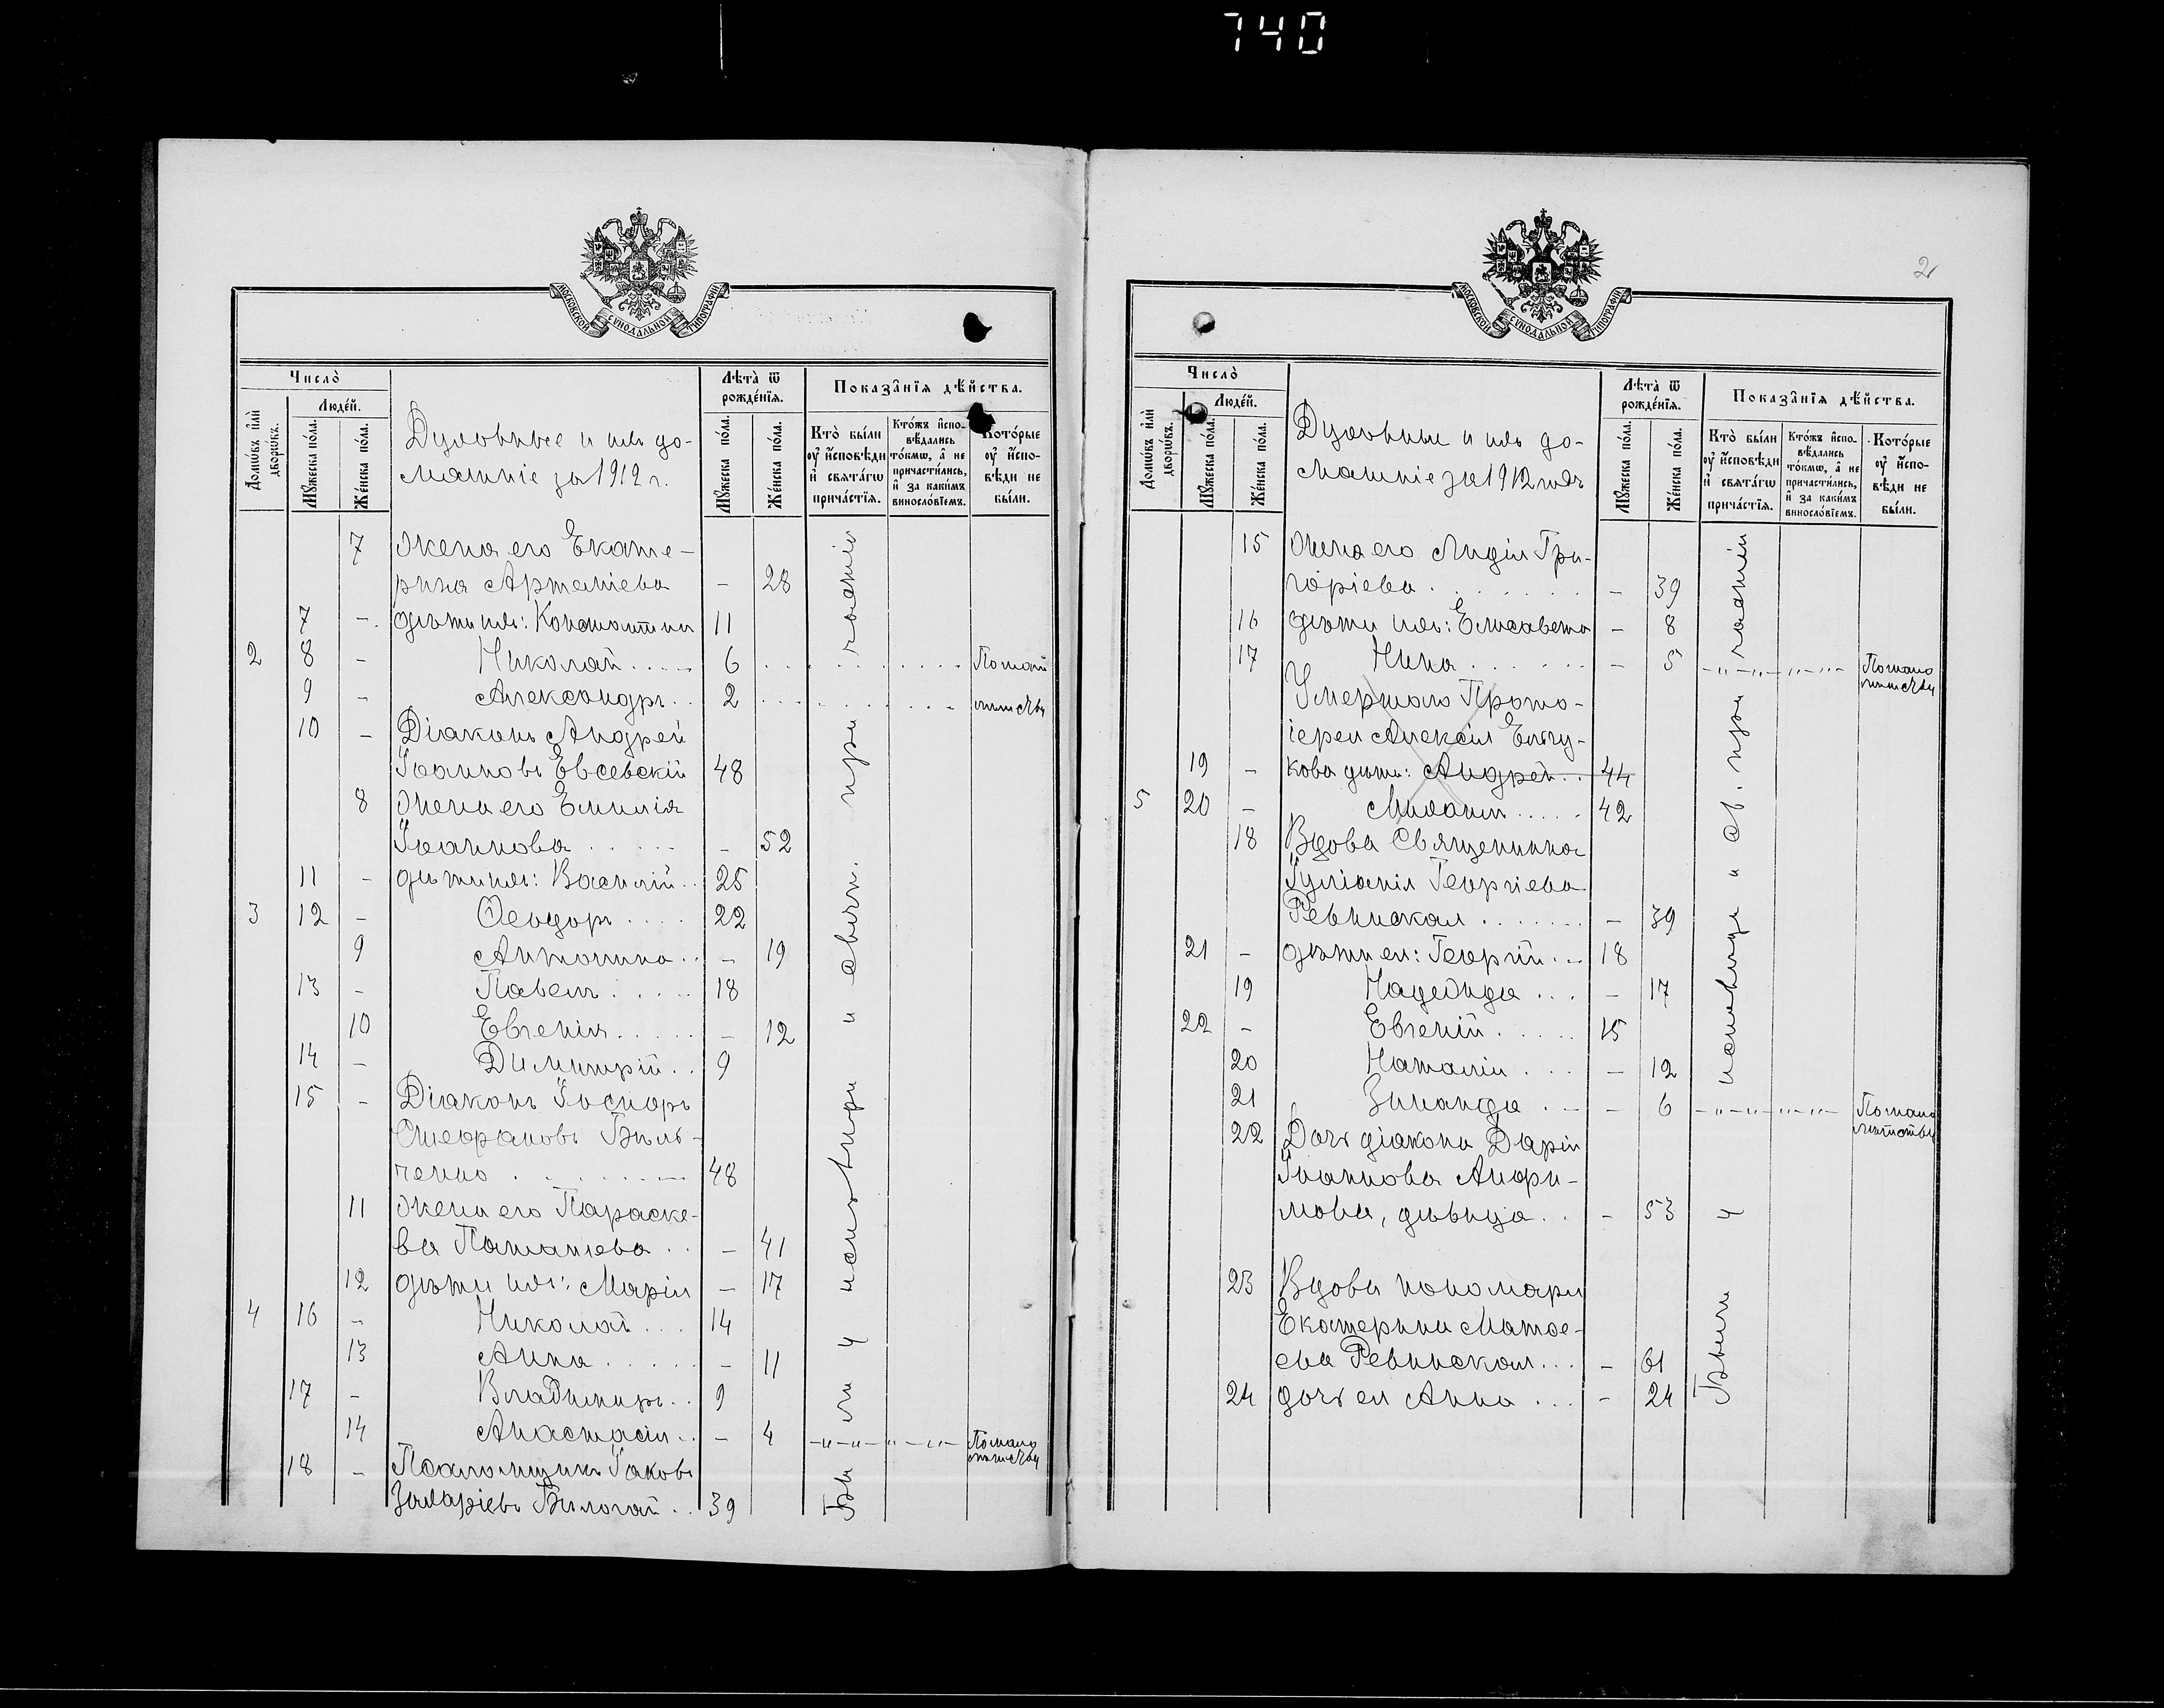 740
МОСКОВСКОЙ СУНОДАЛЬНОЙ ТИПОГРАФІИ
Число̀
Людéй.
Домѡ́въ и҆лѝ дворѡ́въ.
Мꙋ́жеска по́ла.
Же́нска по́ла.
Духовные и ихъ до-
машніе за 1912 г.
Лѣта̀ ѿ рожде́нїѧ.
Мꙋ́жеска по́ла.
Же́нска по́ла.
Показа̑нїѧ дѣ́йства.
Кто̀ бы́ли ᲂу҆ и҆сповѣди и҆ свѧта́гѡ причастїѧ.
Кто́жъ и҆спо-вѣдались то́кмѡ, а҆ не причасти́лись, и҆ за каки́мъ винослóвїемъ.
Кото́рые ᲂу҆ и҆спо-вѣди не бы́ли.
7 Жена его Екате-
рина Артеміева - 28
7 - дѣти ихъ: Константинъ 11
2 8 - Николай 6 По мало
9 - Александръ 2 лѣтству
10 - Діаконъ Андрей
Іоанновъ Евсевскій 48
8 Жена его Емилія
Іоаннова - 52
11 - дѣти ихъ: Василій 25
3 12 - Ѳеодоръ 22
9 Антонина - 19
13 - Павелъ 18
10 Евгенія - 12
14 - Димитрій 9
15 - Діаконъ Іосифъ
Стефановъ Виль-
ченко 48
11 Жена его Параске-
ва - 41
12 дѣти ихъ: Марія - 17
4 16 - Николай 14
13 Анна - 11
17 - Владиміръ 9
14 Анастасія - 4 По мало лѣтству
18 - Псаломщикъ Іаковъ
Захаріевъ 39
Были у исповѣди и святаго причастія
2
МОСКОВСКОЙ СУНОДАЛЬНОЙ ТИПОГРАФІИ
Число̀
Людéй.
Домѡ́въ и҆лѝ дворѡ́въ.
Мꙋ́жеска по́ла.
Же́нска по́ла.
Духовные и ихъ до-
машніе за 1912 годъ
Лѣта̀ ѿ рожде́нїѧ.
Мꙋ́жеска по́ла.
Же́нска по́ла.
Показа̑нїѧ дѣ́йства.
Кто̀ бы́ли ᲂу҆ и҆сповѣди и҆ свѧта́гѡ причастїѧ.
Кто́жъ и҆спо-вѣдались то́кмѡ, а҆ не причасти́лись, и҆ за каки́мъ винослóвїемъ.
Кото́рые ᲂу҆ и҆спо-вѣди не бы́ли.
15 Жена его Лидія Гри-
горіева - 39
16 дѣти ихъ: Елисавета - 8
17 Нина - 5 По мало лѣтству
Умершаго Прото-
іерея Алексія
19 - кова дѣти: Андрей 44
5 20 - Михаилъ 42
18 Вдова Священника
Іуліанія Георгіева
Ревинская - 39
21 - дѣти ея: Георгій 18
19 Надежда - 17
22 - Евгеній 15
20 Наталія - 12
21 Зинаида - 6 По мало лѣтству
22 Дочь діакона Дарія
Іоаннова Анфи-
мова, дѣвица - 53
23 Вдова пономаря
Екатерина Матѳе-
ева Ревинская - 61
24 дочь ея Анна - 24
Были у исповѣди и св. причастія